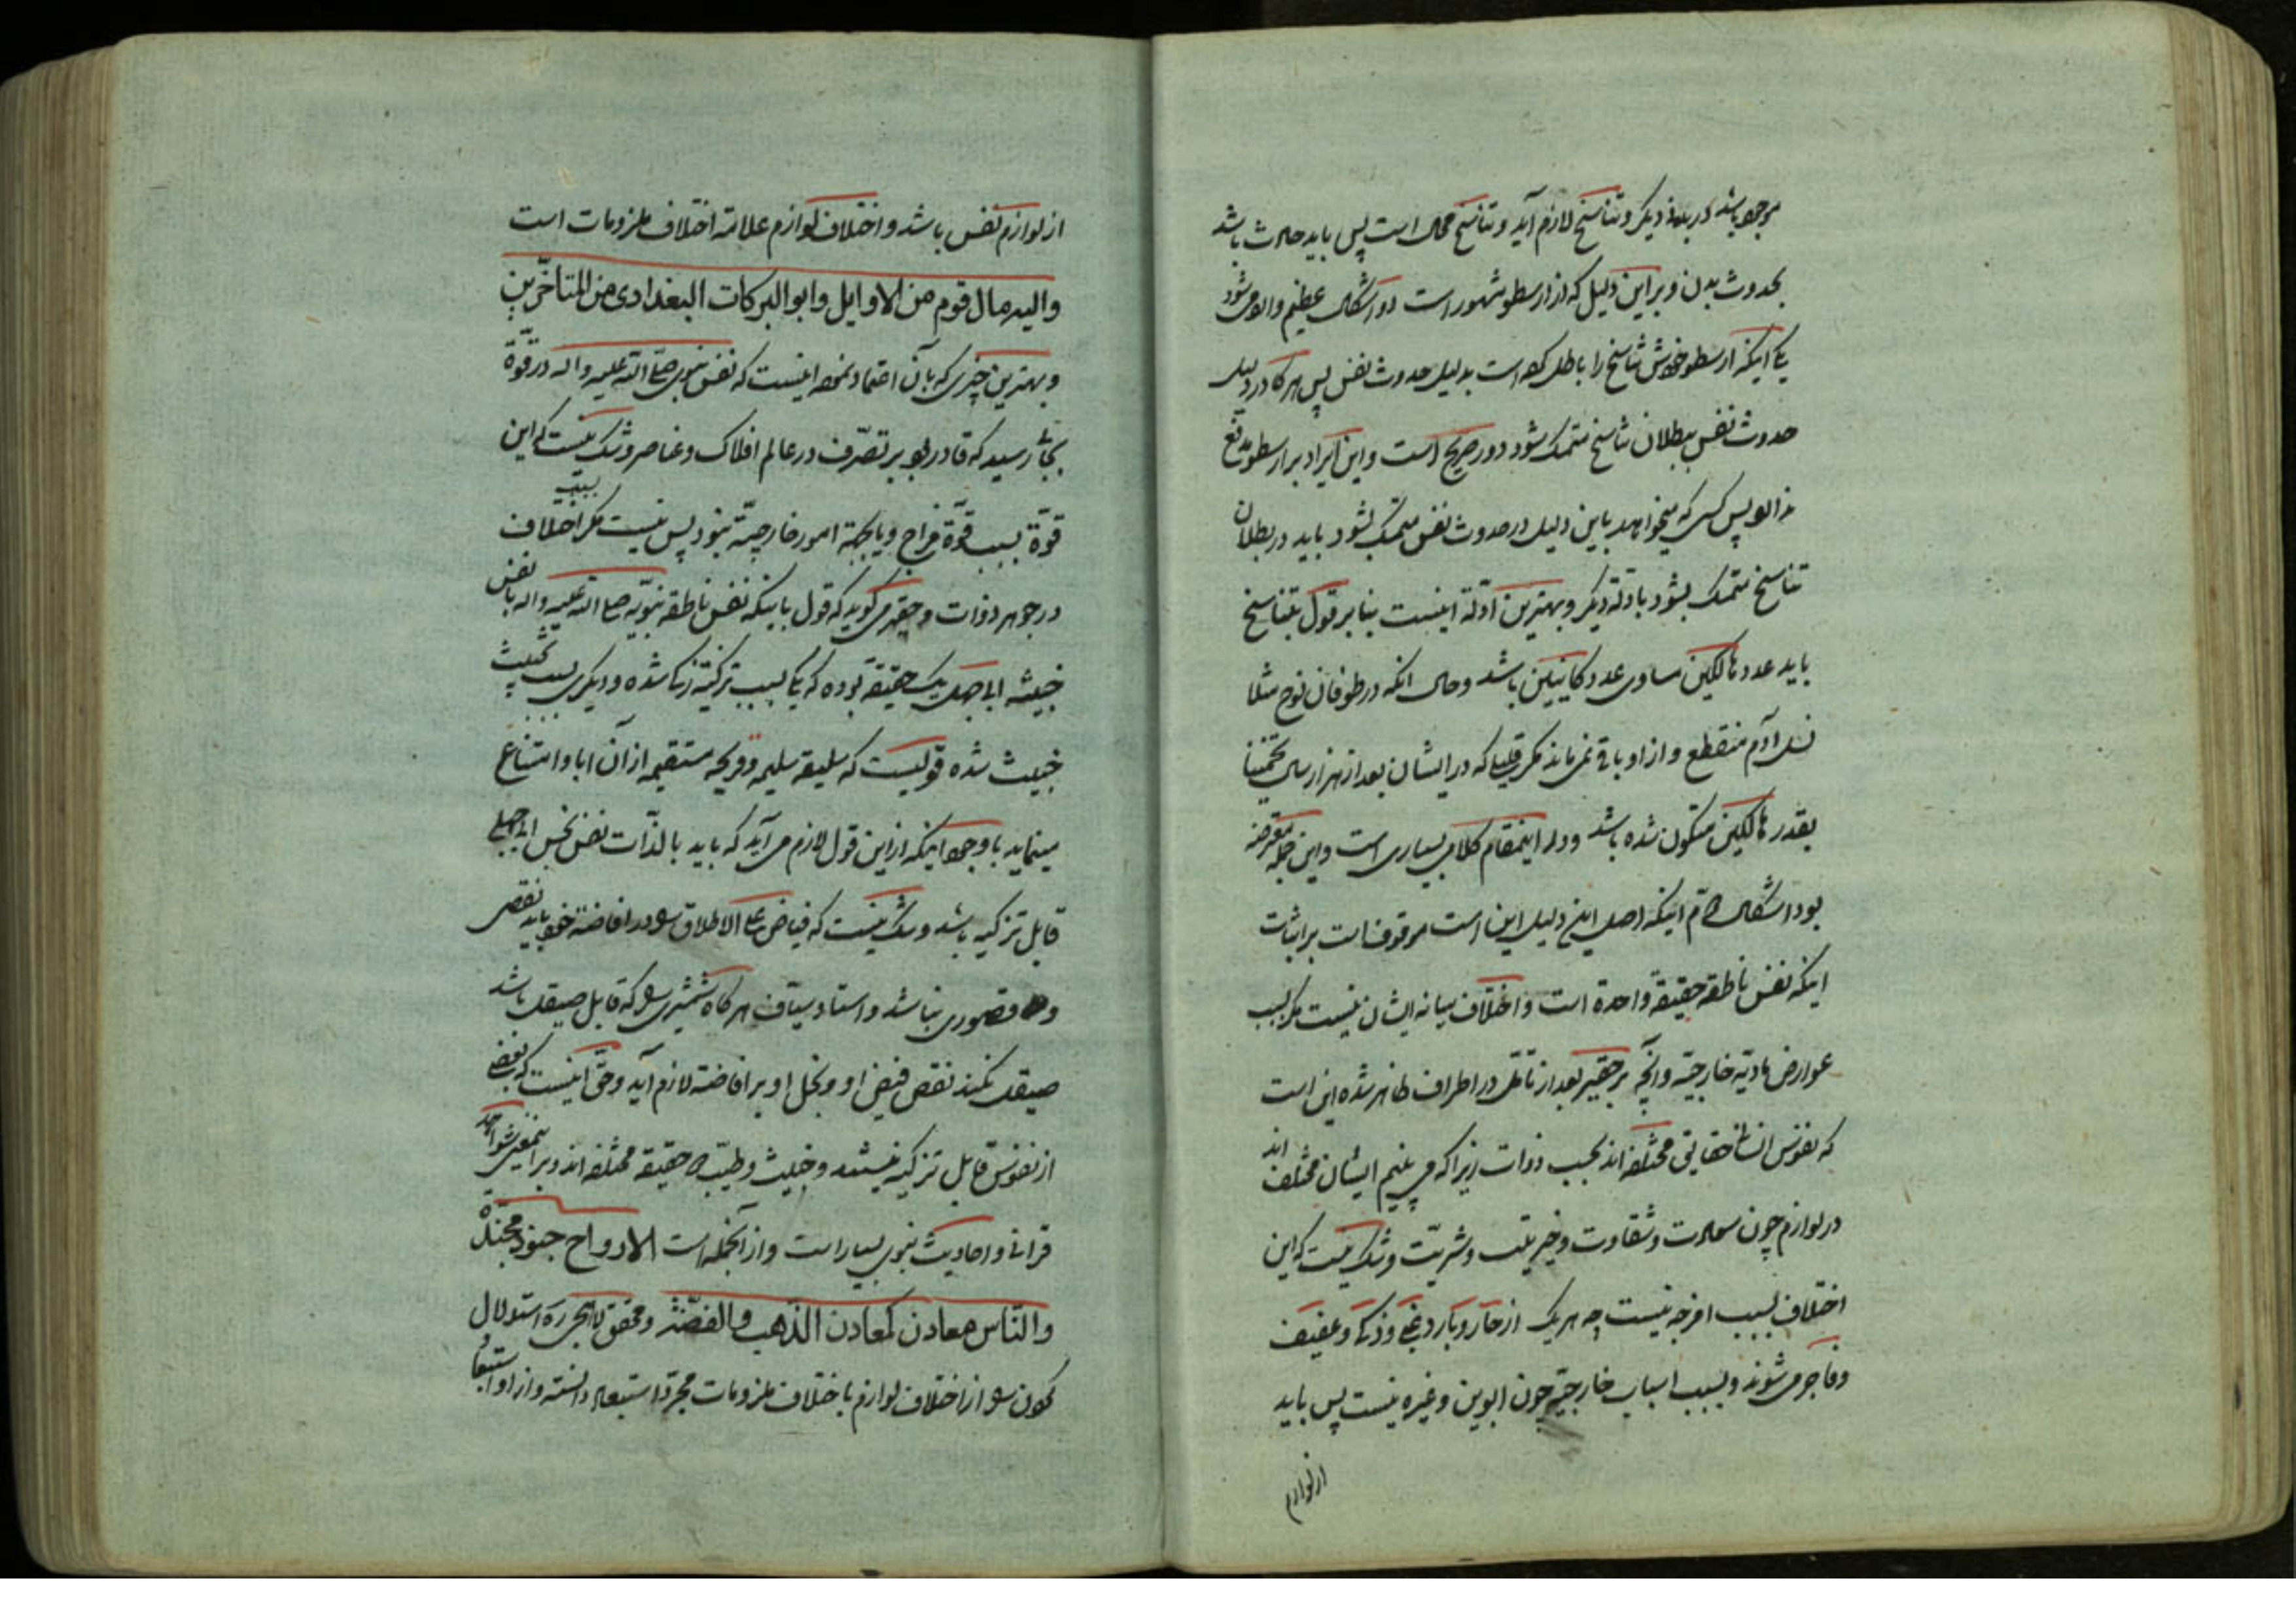 موجود باشد در بدن دیگر و تناسخ لازم آید و تناسخ محال است پس باید حادث باشد
بحدوث بدن و بر این دلیل که از ارسطو مشهور است دو اشکال عظیم وارد می‌شود
یکی اینکه ارسطو خودش تناسخ را باطل کرده است بدلیل حدوث نفس پس هرگاه در دلیل
حدوث نفس ببطلان تناسخ متمسک شود دور صریح است و این ایراد بر ارسطو
پس کسی که میخواهد باین دلیل در حدوث نفس متمسک بشود باید در بطلان
تناسخ متمسک بشود بادلّه دیگر و بهترین ادلّه اینست بنا بر قول بتناسخ
باید عدد هالکین مساوی عدد کاینین باشد و حال انکه در طوفان نوح مثلا
نسل آدم منقطع و از او باقی نمی‌ماند مکر قلیلی که در ایشان بعد از هزار سال تخمینا
بقدر هالکین متکون شده باشد و در اینمقام کلام بسیاری است و این جمله معترضه
بود اشکال دوّم اینکه اصل این دلیل این است موقوف است بر اثبات
اینکه نفس ناطقه حقیقة واحدة است و اختلاف میانه ایشان نیست مکر بسبب
عوارض مادیّه خارجیّه و آنچه بر حقیر بعد از تأمّل در اطراف ظاهر شده این است
که نفوس انسانی حقایق مختلفه‌اند بحسب ذوات زیرا که می‌بینیم ایشان مختلف اند
در لوازم چون سعادت و شقاوت و خیریّت و شریّت و شک نیست که این
اختلاف بسبب امزجه نیست چه هر یک از حارّ و بارد غبی و ذکی و عفیف
و فاجر می‌شوند و بسبب اسباب خارجیّه چون ابوین و غیره نیست پس باید
از لوازم
از لوازم نفس باشد و اختلاف لوازم علامة اختلاف ملزومات است
والیه مال قوم من الاوایل وابو البرکات البغدادی من المتأخّرین
و بهترین چیزی که بآن اعتماد نموده اینست که نفس نبوی صلّی الله علیه و اله در قوّة
بجائی رسید که قادر بود بر تصرّف در عالم افلاک و عناصر و شک نیست که این
قوّة بسبب قوّة مزاج و یا بجهة امور خارجیّة نبود پس نیست مکر بسبب اختلاف
در جوهر ذوات و حقیر می‌کوید که قول باینکه نفس ناطقه نبویّه صلی الله علیه و اله با نفس
خبیثه ابی جهل یک حقیقة بوده که یکی بسبب تزکیة زکی شده و دیکری بسبب تخبیث
خبیث شده قولیست که سلیقه سلیمه و قریحه مستقیمه از آن ابا و امتناع
مینماید با وجود اینکه از این قول لازم می‌آید که باید بالذّات نفس نحس ابی جهلی
قابل تزکیه باشد و شک نیست که فیاض علی الاطلاق را در افاضه خود باید نقصی
و قصوری نباشد و استاد سیّاف هرکاه شمشیری را که قابل صیقل باشد
صیقل نکند نقص فیض او و بخل او بر افاضة لازم آید و حقّ اینست که بعضی
از نفوس قابل تزکیه نیستند و خبیث و طیّب دو حقیقة مختلفه اند و بر اینمعنی شواهد
قرانی و احادیث نبوی بسیار است و از آنجمله است الارواح جنود مجنّدة
والنّاس معادن کمعادن الذّهب والفضّة و محقق لاهیجی ره استدلال
کردن را از اختلاف لوازم باختلاف ملزومات مجرّد استبعاد دانسته و از او استبعا